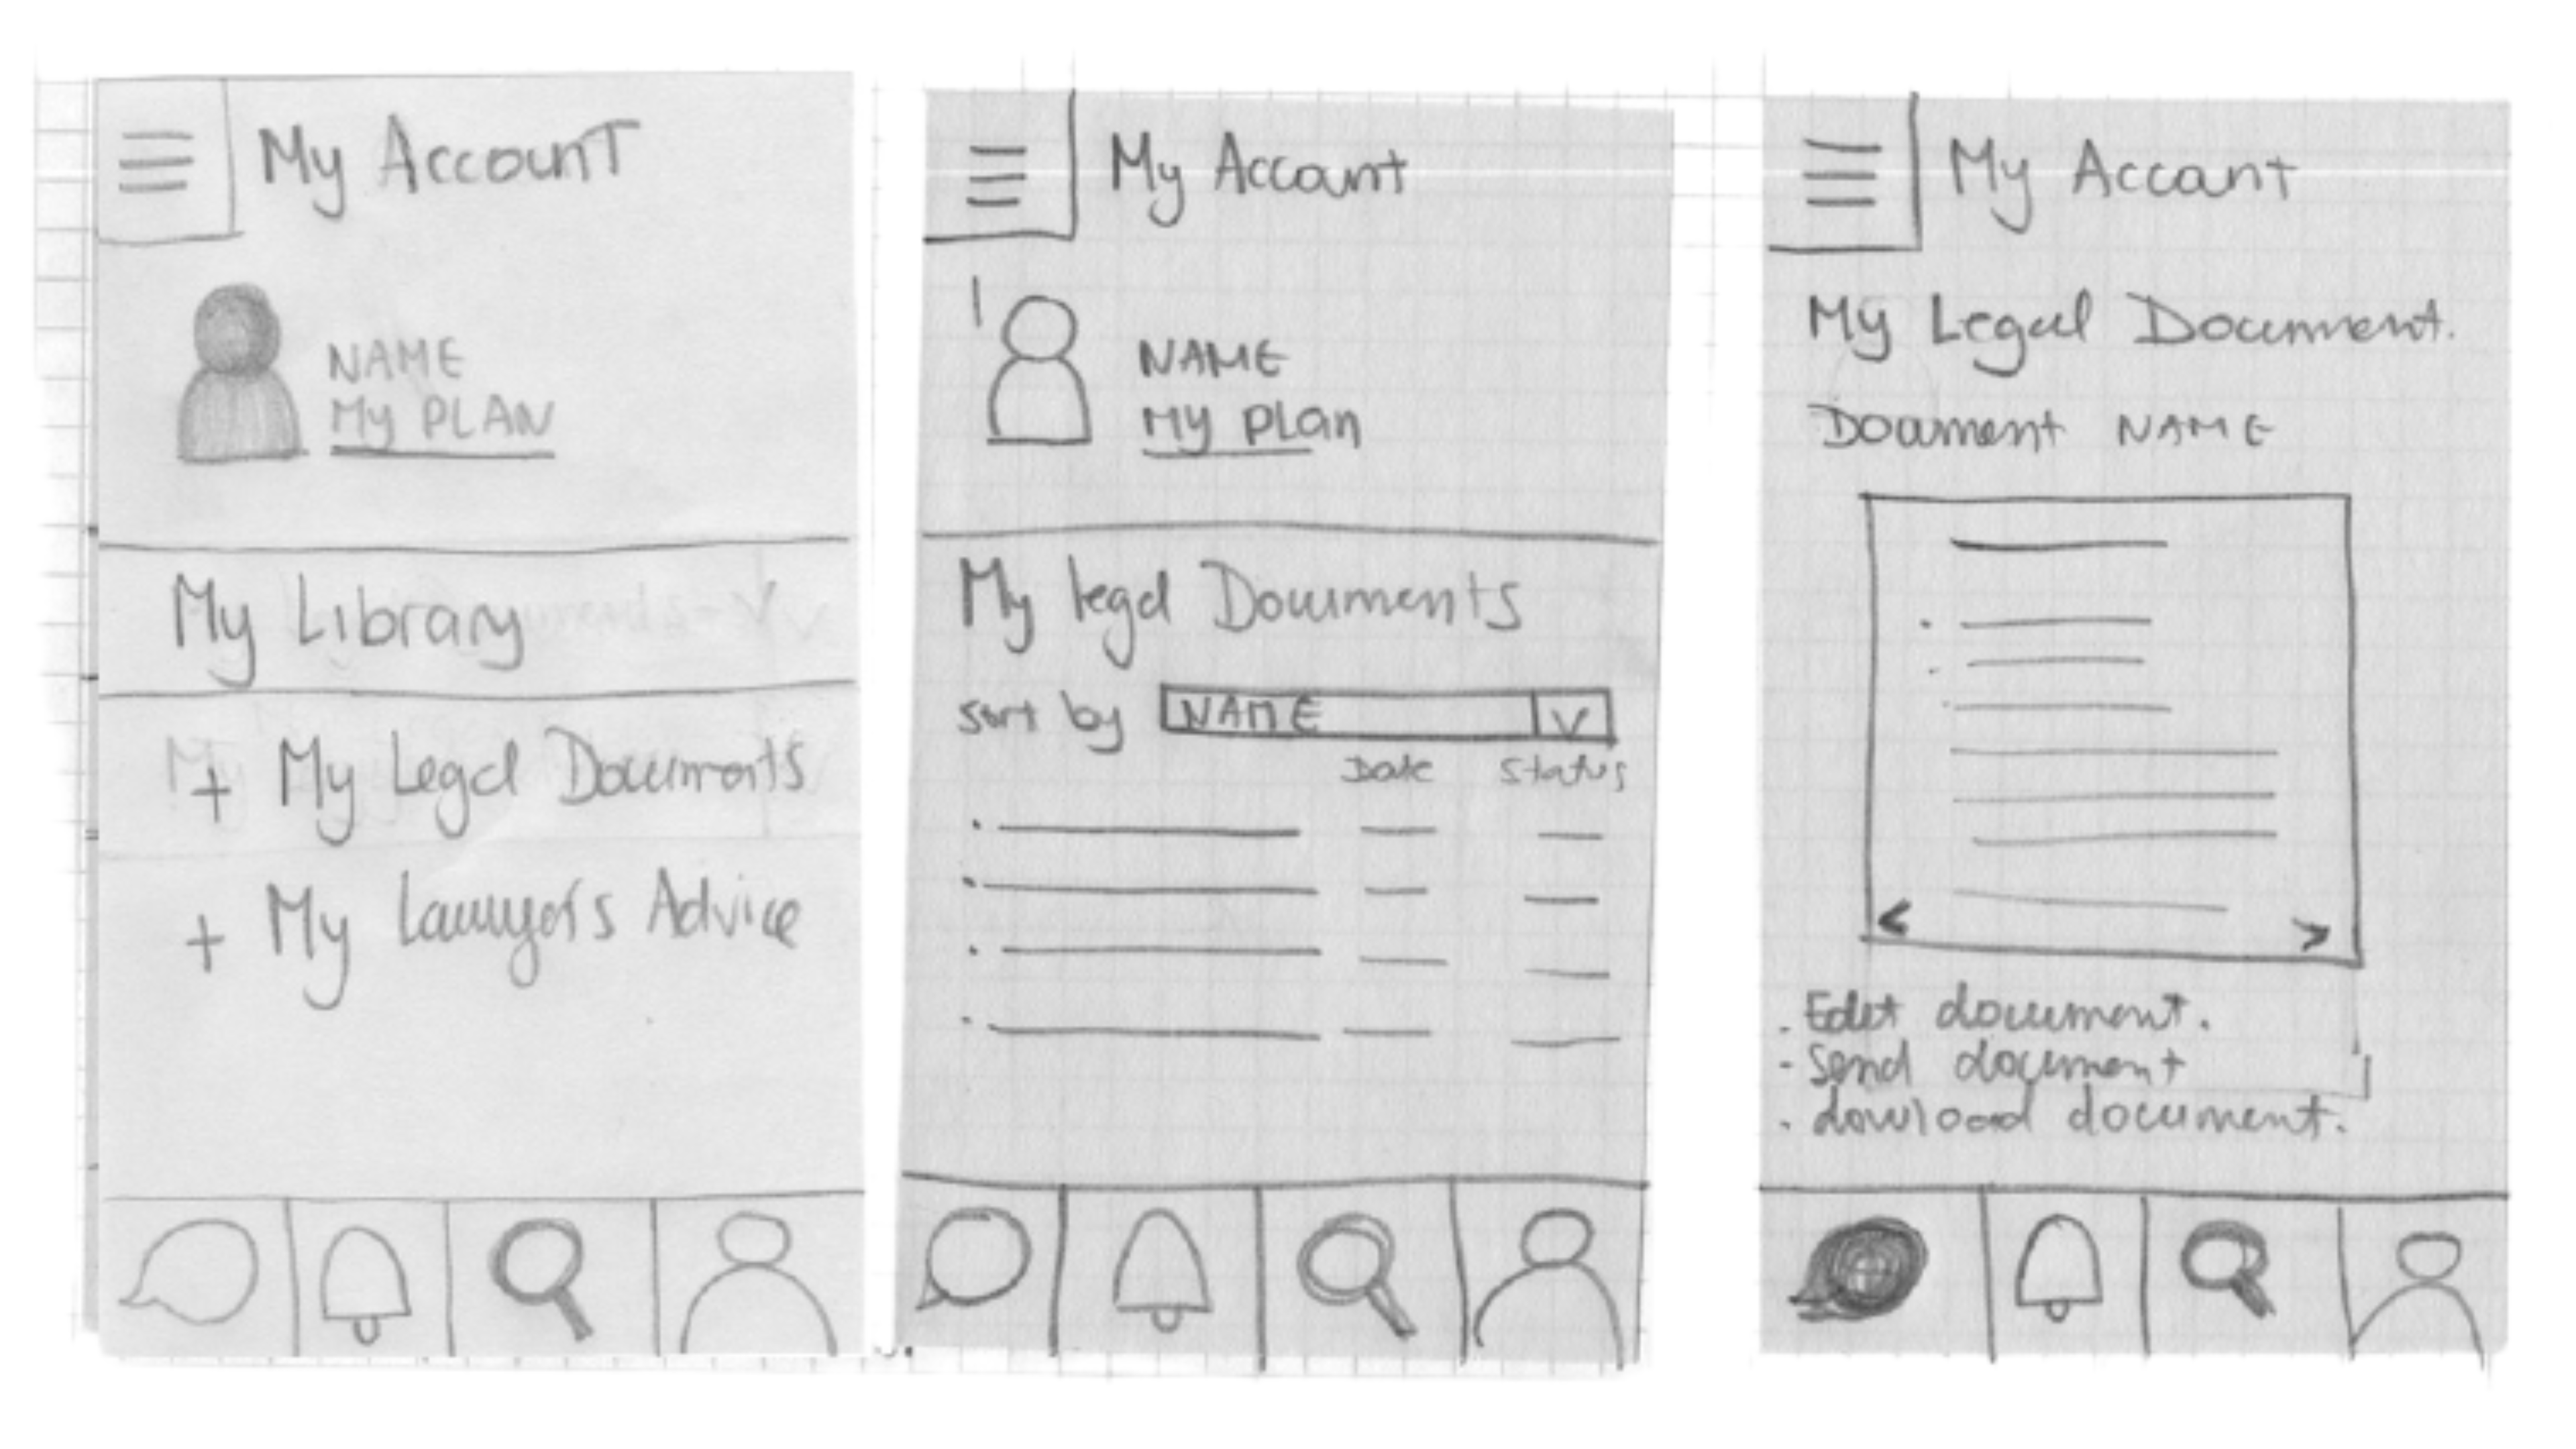 My Account
NAME
My PLAN
My Library
+ My Legal Documents
+ My Lawyer's Advice
My Account
NAME
My plan
My legal Documents
sort by NAME V
Date Status
My Account
My Legal Document.
Document NAME
< >
. Edit document.
- Send document
. download document.